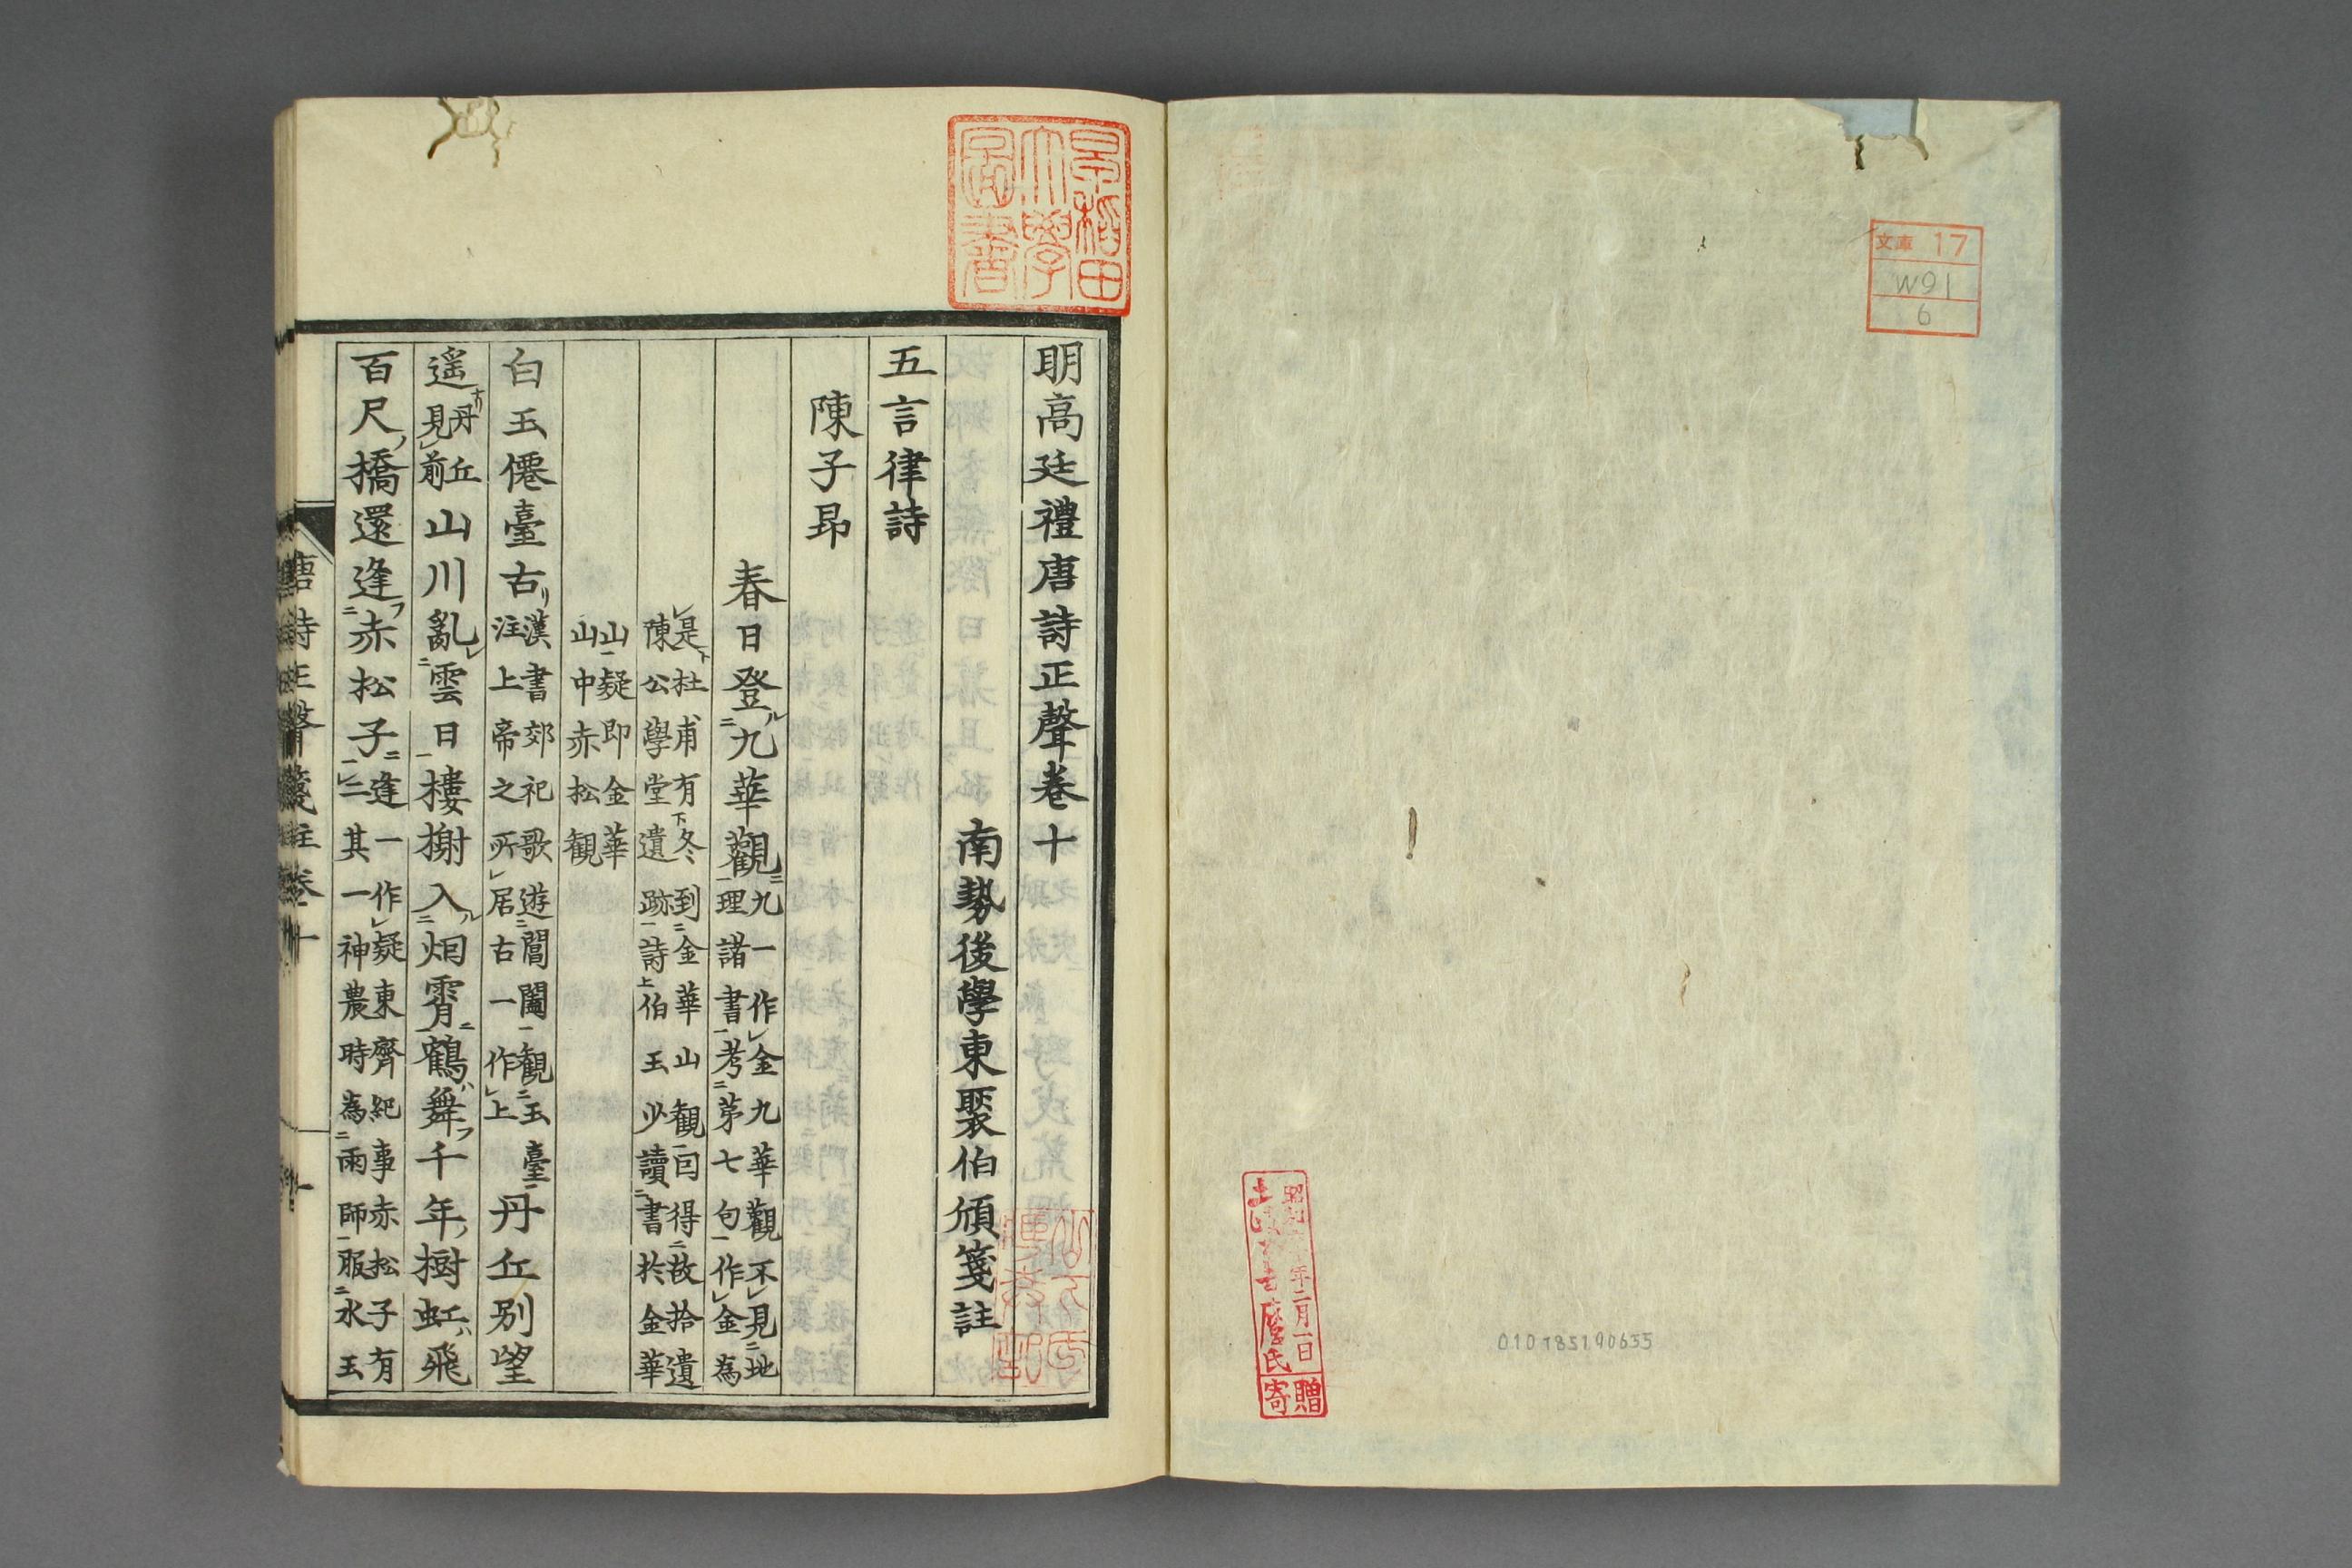 文庫 17
W91
6
年二月一日
寄贈
010185190655
早稲田
大學
圖書
明高廷禮唐詩正聲卷十
南勢後學東褧伯頎箋註
五言律詩
陳子昻
春日登九華觀九一作金九華觀不見地
理諸書考苐七句一作金為
是杜甫有冬到金華山觀曰得故拾遺
陳公學堂遺跡詩伯玉少讀書於金華
山疑即金華
山中赤松觀
白玉僊臺古漢書郊祀歌遊閶闔觀玉臺
注上帝之所居古一作上
丹丘別望
遥丹丘
見前
山川亂雲日樓榭入烟霄鶴舞千年樹虹飛
百尺橋還逢赤松子逢一作疑東齊紀事赤松子有
二其一神農時為雨師服水玉
唐詩正聲箋註卷十
一